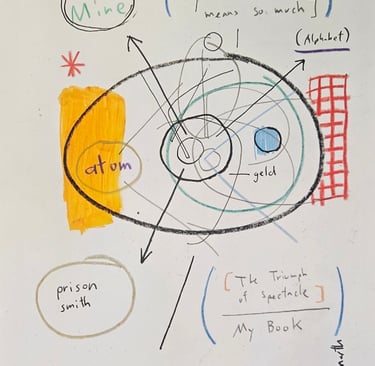 Mine
means so much ]
(Alphabet)
atom
geld
prison
smith
[ The Triumph
of Spectacle ]
My Book